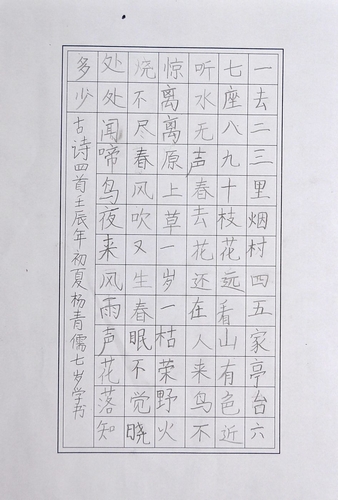 一去二三里烟村四五家亭台六
七座八九十枝花远看山有色近
听水无声春去花还在人来鸟不
惊离离原上草一岁一枯荣野火
烧不尽春风吹又生春眠不觉晓
处处闻啼鸟夜来风雨声花落知
多少古诗四首壬辰年初夏杨青儒七岁学书